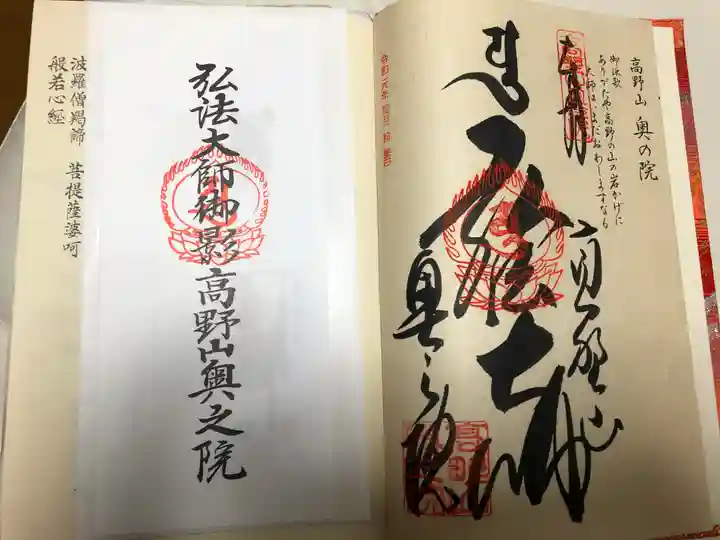 高野山 奥の院
御詠歌
ありがたや高野の山の岩かげに
大師はいまだおわしますなる
奉拝
弘法大師
高野山
奥之院
弘法大師御影高野山奥之院
波羅僧羯諦 菩提薩婆呵
般若心経